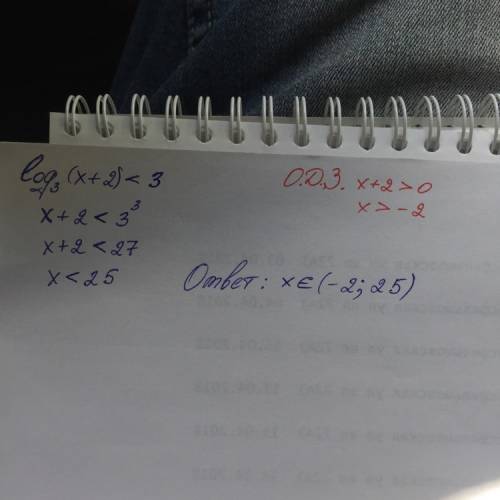 log₃(x+2)<3
x+2<3³
x+2<27
x<25
О.Д.З. x+2>0
x>-2
Ответ: x∈(-2; 25)